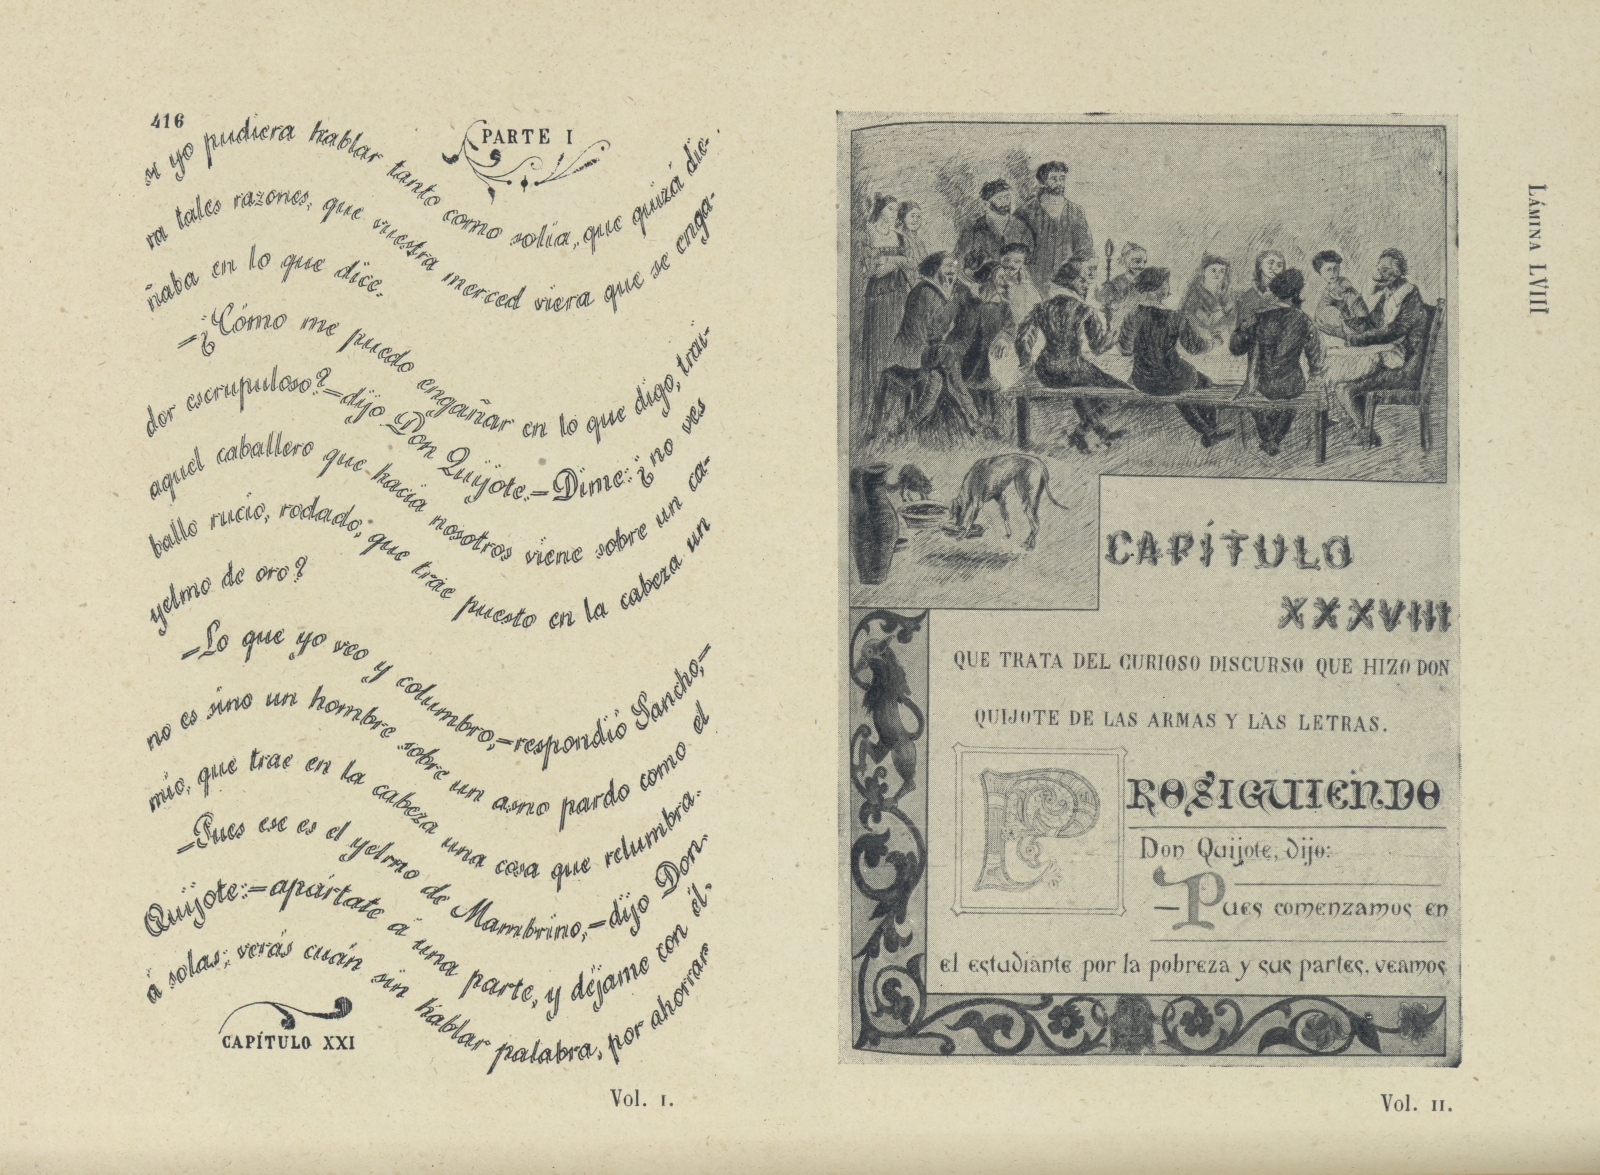 416
PARTE I
si yo pudiera hablar tanto como solía, que quizá die-
ra tales razones, que vuestra merced viera que se enga-
ñaba en lo que dice.
—¿Cómo me puedo engañar en lo que digo, trai-
dor escrupuloso?—dijo Don Quijote.—Dime: ¿no ves
aquel caballero que hacia nosotros viene sobre un ca-
ballo rucio, rodado, que tráe puesto en la cabeza un
yelmo de oro?
—Lo que yo veo y columbro,—respondió Sancho,—
no es sino un hombre sobre un asno pardo como el
mío, que trae en la cabeza una cosa que relumbra.
—Pues ese es el yelmo de Mambrino,—dijo Don
Quijote:—apártate á una parte, y déjame con él,
á solas; verás cuán sin hablar palabra, por ahorrar
CAPÍTULO XXI
Vol. I.
CAPÍTULO
XXXVIII
QUE TRATA DEL CURIOSO DISCURSO QUE HIZO DON
QUIJOTE DE LAS ARMAS Y LAS LETRAS.
PROSIGUIENDO
Don Quijote, dijo:
—Pues comenzamos en
el estudiante por la pobreza y sus partes, veamos
Vol. II.
LÁMINA LVIII